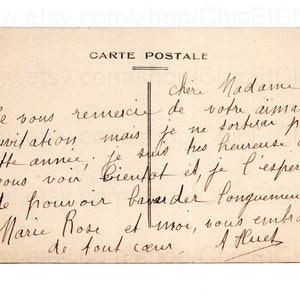 www.etsy.com/shop/ChicEtCh
CARTE POSTALE
chère Madame
e vous remercie de votre aima
vitation mais je ne sortirai p
tte année, je suis très heureuse d
vous voir bientot et, je l'esper
de pouvoir bavarder longuemen
Marie Rose et moi, vous embra
de tout cœur. A Huet